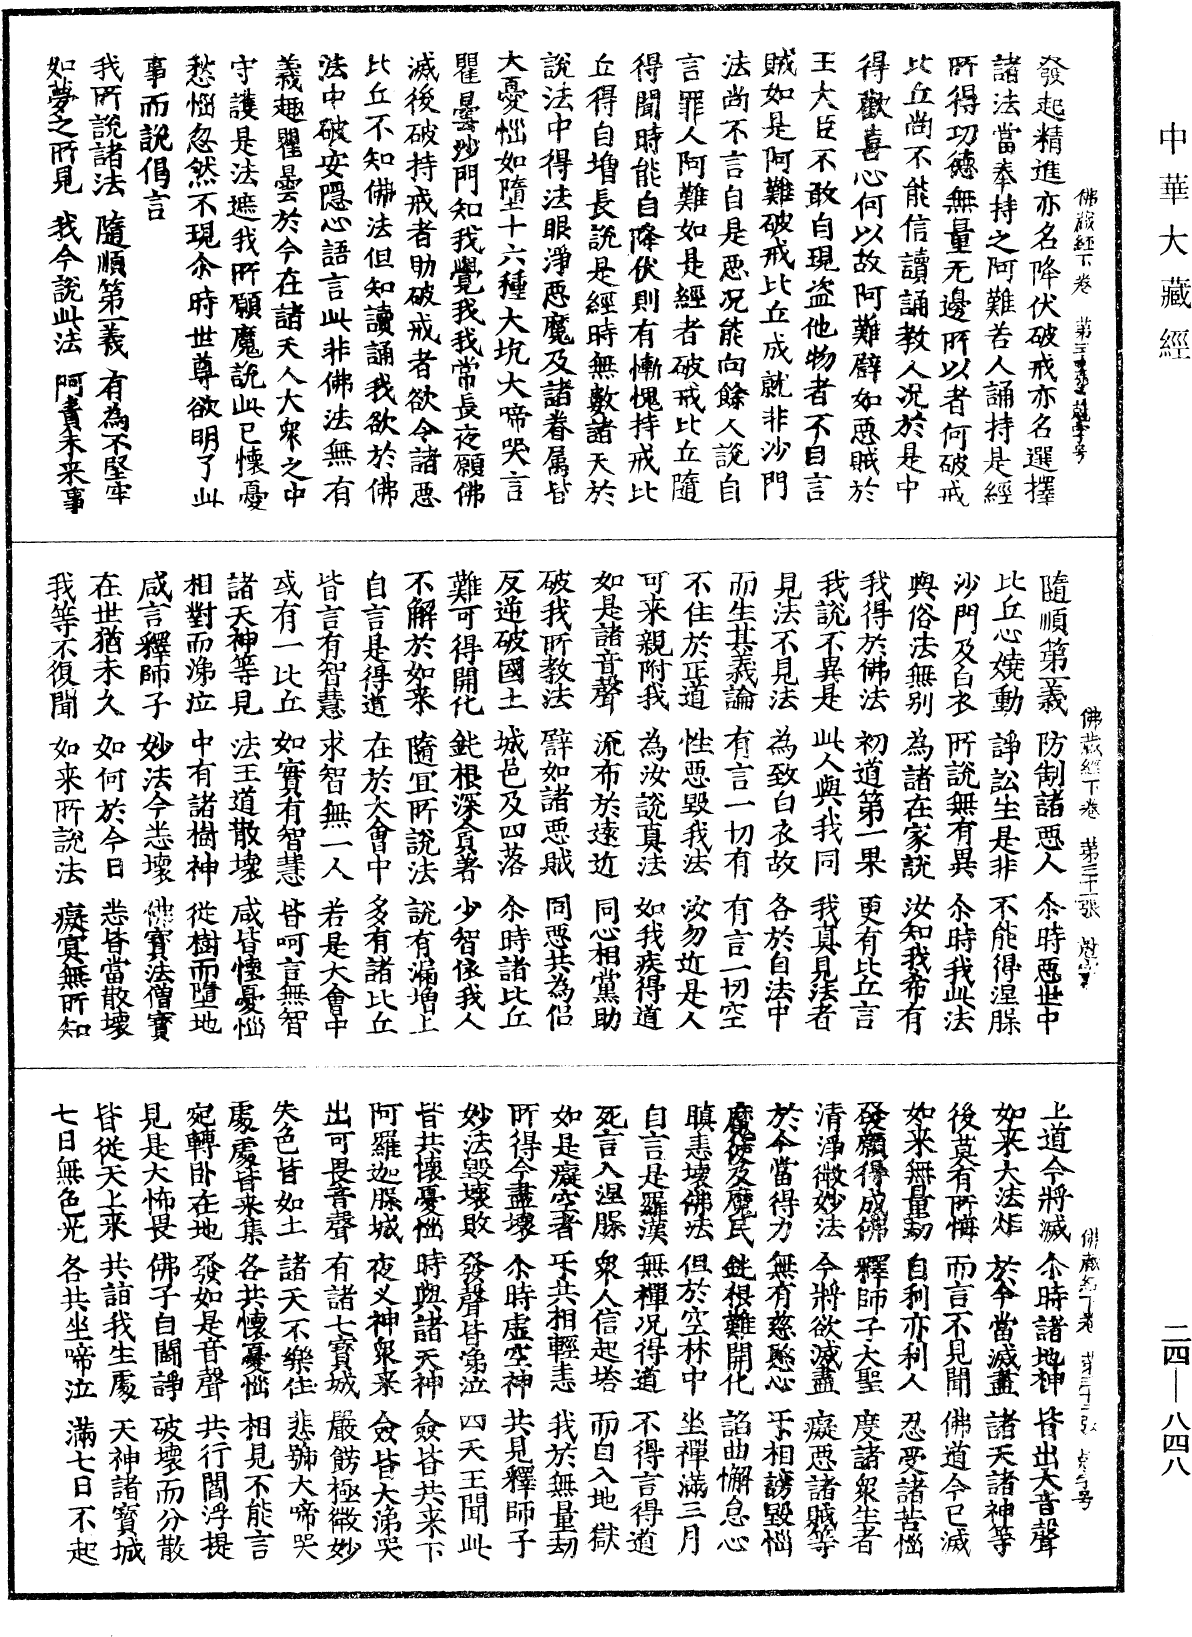 中華大藏經
佛藏經下卷　第三
發起精進亦名降伏破戒亦名選擇
諸法當奉持之阿難若人誦持是經
所得功德無量无邊所以者何破戒
比丘尚不能信讀誦教人况於是中
得歡喜心何以故阿難譬如惡賊於
王大臣不敢自現盗他物者不自言
賊如是阿難破戒比丘成就非沙門
法尚不言自是惡况能向餘人說自
言罪人阿難如是經者破戒比丘隨
得聞時能自降伏則有慚愧持戒比
丘得自増長說是經時無數諸天於
說法中得法眼淨惡魔及諸眷属皆
大憂惱如墮十六種大坑大啼哭言
瞿曇沙門知我覺我我常長夜願佛
滅後破持戒者助破戒者欲令諸惡
比丘不知佛法但知讀誦我欲於佛
法中破安隱心語言此非佛法無有
義趣瞿曇於今在諸天人大衆之中
守護是法遮我所願魔說此已懷憂
愁惱忽然不現尒時世尊欲明了此
事而說偈言
我所說諸法　隨順第一義　有為不堅牢
如夢之所見　我今說此法　呵責未来事
佛藏經下卷　第三十一張
隨順第一義　防制諸惡人　尒時惡世中
比丘心嬈動　諍訟生是非　不能得涅槃
沙門及白衣　所說無有異　尒時我此法
與俗法無别　為諸在家說　汝知我希有
我得於佛法　初道第一果　更有比丘言
我說不異是　此人與我同　我真見法者
見法不見法　為致白衣故　各於自法中
而生其義論　有言一切有　有言一切空
不住於正道　性惡毀我法　汝勿近是人
可来親附我　為汝說真法　如我疾得道
如是諸音聲　流布於遠近　同心相黨助
破我所教法　譬如諸惡賊　同惡共為侣
反逆破國土　城邑及四落　尒時諸比丘
難可得開化　鈍根深貪著　少智依我人
不解於如来　隨冝所說法　說有漏増上
自言是得道　在於大會中　多有諸比丘
皆言有智慧　求智無一人　若是大會中
或有一比丘　如實有智慧　皆呵言無智
諸天神等見　法王道散壞　咸皆懷憂惱
相對而涕泣　中有諸樹神　從樹而墮地
咸言釋師子　妙法今悉壞　佛寳法僧寳
在世猶未久　如何於今日　悉皆當散壞
我等不復聞　如来所說法　癡冥無所知
佛藏經下卷　第三十二張
上道今將滅　尒時諸地神　皆出大音聲
如来大法炬　於今當滅盡　諸天諸神等
後莫有所悔　而言不見聞　佛道今已滅
如来無量劫　自利亦利人　忍受諸苦惱
發願得成佛　釋師子大聖　度諸衆生者
清淨微妙法　今將欲滅盡　癡惡諸賊等
於今當得力　無有慈愍心　手相謗毀惱
魔使及魔民　鈍根難開化　諂曲懈怠心
瞋恚壞佛法　但於空林中　坐禪滿三月
自言是羅漢　無禪况得道　不得言得道
死言入涅槃　衆人信起塔　而自入地獄
如是癡空者　手共相輕恚　我於無量劫
所得今盡壞　尒時虚空神　共見釋師子
妙法毀壞敗　發聲皆涕泣　四天王聞此
皆共懷憂惱　時與諸天神　僉皆共来下
阿羅迦槃城　夜叉神衆来　僉皆大涕哭
出可畏音聲　有諸七寳城　嚴餝極微妙
失色皆如土　諸天不樂住　悲號大啼哭
處處皆来集　各共懷憂惱　相見不能言
宛轉卧在地　發如是音聲　共行閻浮提
見是大怖畏　佛子自鬪諍　破壞而分散
皆從天上来　共詣我生處　天神諸寳城
七日無色光　各共坐啼泣　滿七日不起
二四—八四八